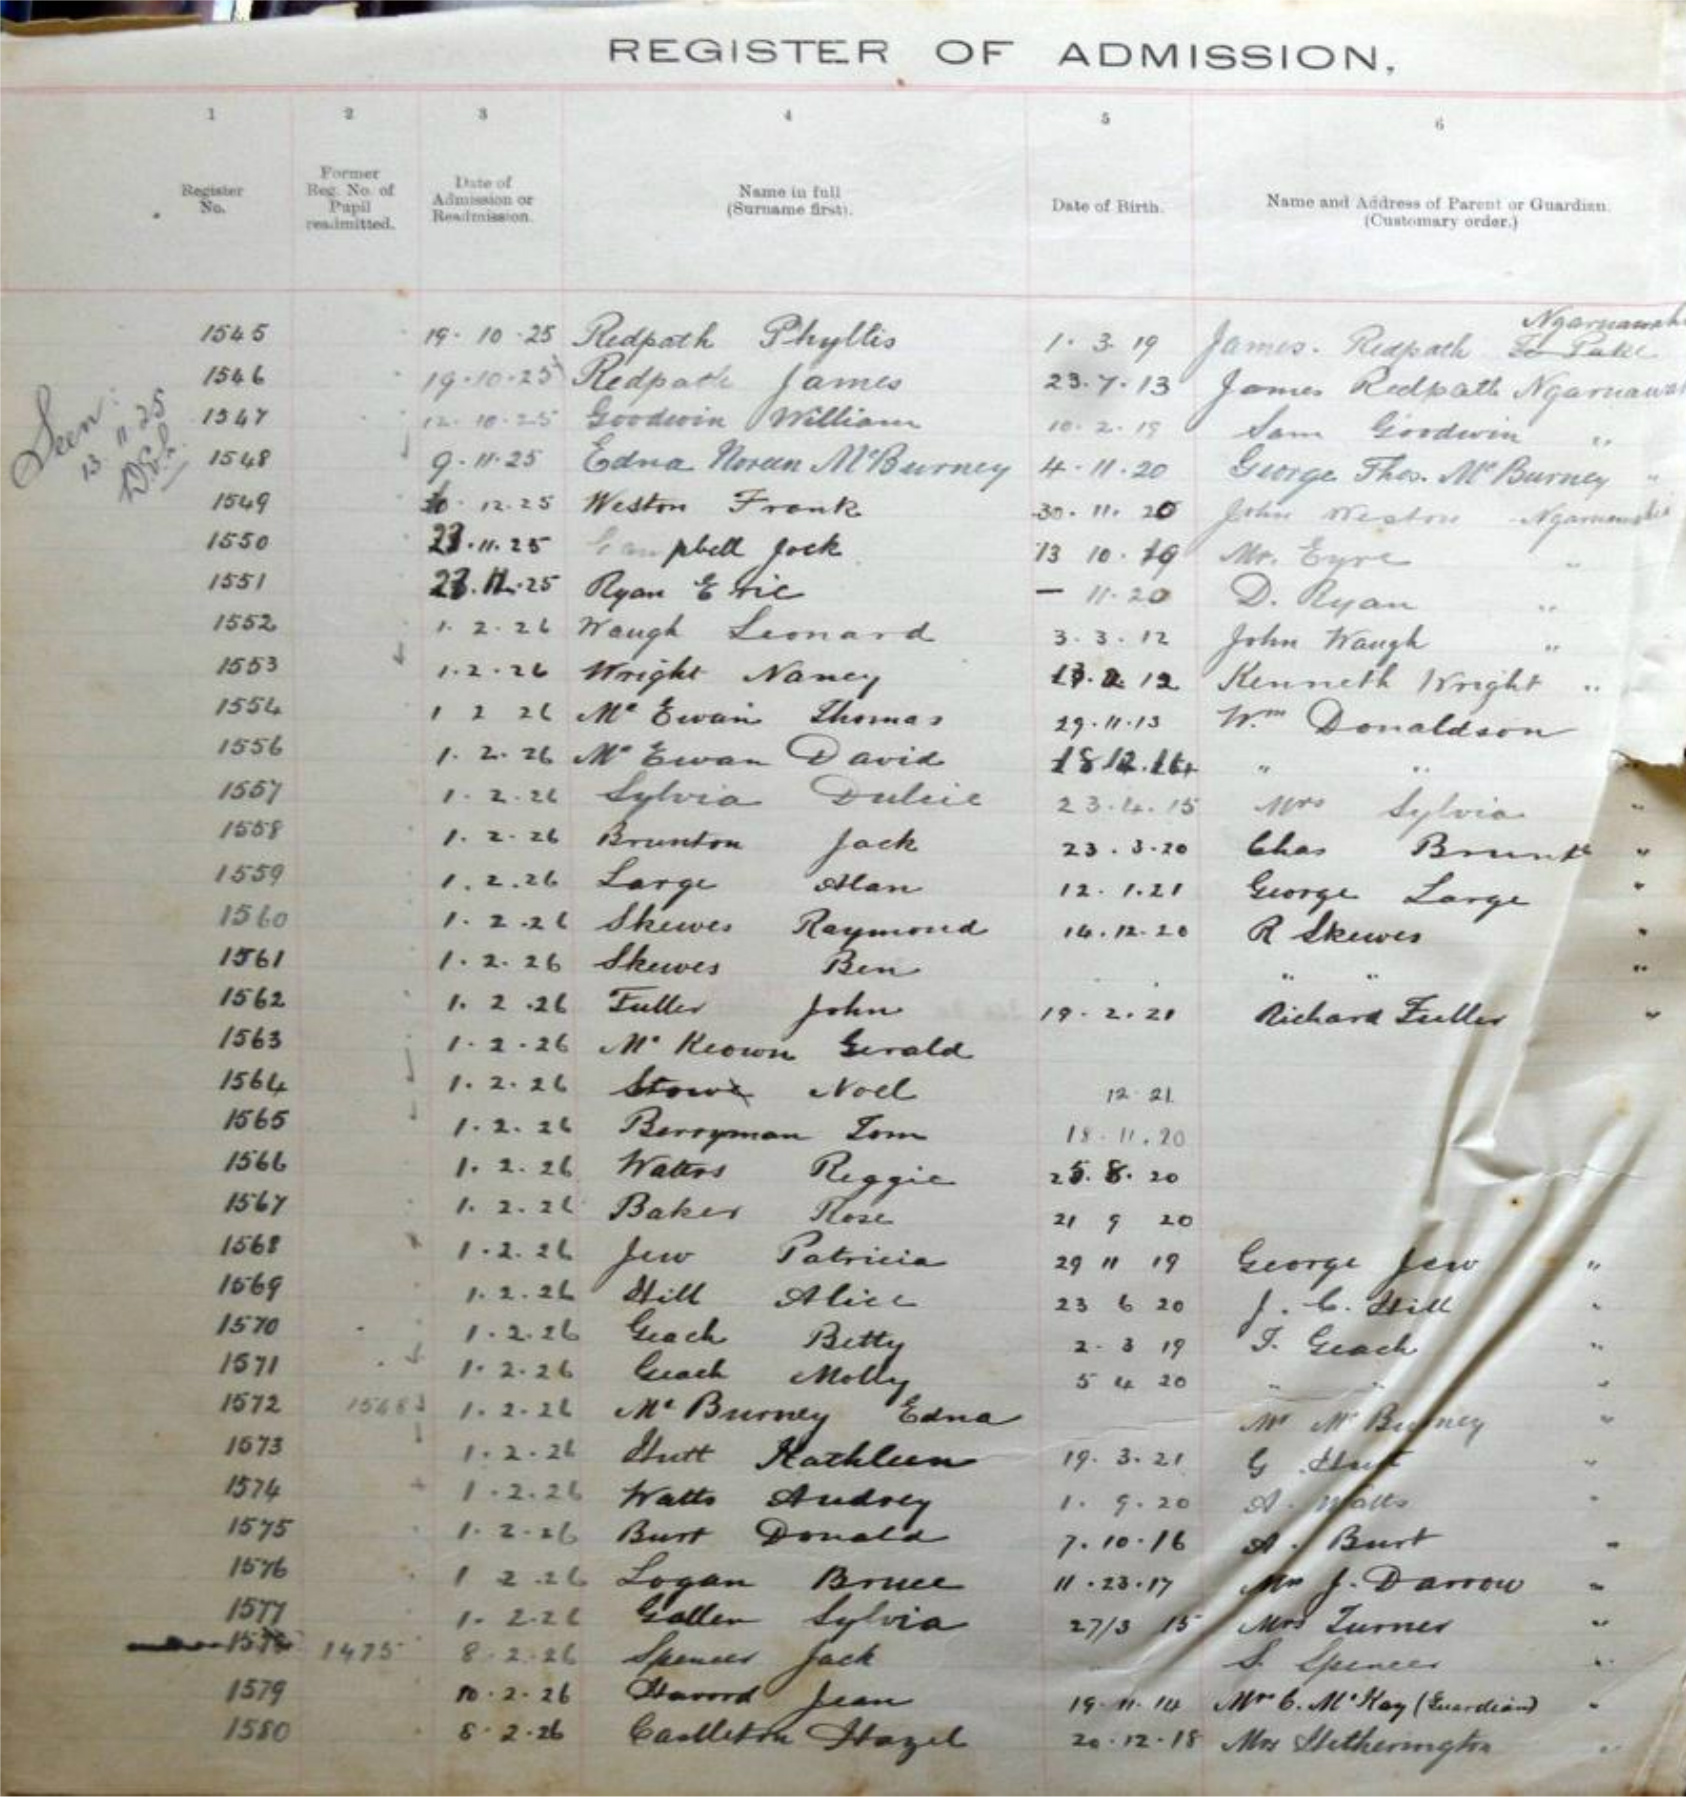 REGISTER OF ADMISSION.
1 2 3 4 5 6
Register No. Former Reg. No. of Pupil readmitted. Date of Admission or Readmission. Name in full (Surname first). Date of Birth. Name and Address of Parent or Guardian. (Customary order.)
Ngaruawahi
1545 19.10.25 Redpath Phyllis 1.3.19 James. Redpath Te Pake
1546 19.10.25 Redpath James 23.7.13 James Redpath Ngaruawa
Seen:
13.11.25
1547 12.10.25 Goodwin William 10.2.19 Sam Goodwin "
1548 9.11.25 Edna Noreen McBurney 4.11.20 George Thos. McBurney "
1549 12.25 Weston Frank 30.11.20 John Weston Ngaruawahia
1550 23.11.25 Campbell Jock 13 10.19 Mr. Eyre "
1551 .25 Ryan Eric — 11.20 D. Ryan "
1552 1.2.26 Waugh Leonard 3.3.12 John Waugh "
1553 1.2.26 Wright Nancy 12 Kenneth Wright "
1554 1 2 26 McEwan Thomas 29.11.13 Wm Donaldson
1556 1.2.26 McEwan David 18 12.16 " "
1557 1.2.26 Sylvia Dulcie 23.4.15 Mrs Sylvia "
1558 1.2.26 Brunton Jack 23.3.20 Chas Brunt "
1559 1.2.26 Large Alan 12.1.21 George Large "
1560 1.2.26 Skewes Raymond 14.12.20 R Skewes "
1561 1.2.26 Skewes Ben " " "
1562 1.2.26 Fuller John 19.2.21 Richard Fuller "
1563 1.2.26 McKeown Gerald
1564 1.2.26 Stowe Noel 12 21
1565 1.2.26 Berryman Tom 18.11.20
1566 1.2.26 Watters Reggie 25.8.20
1567 1.2.26 Baker Rose 21 9 20
1568 1.2.26 Jew Patricia 29 11 19 George Jew "
1569 1.2.26 Hill Alice 23 6 20 J. C. Hill "
1570 1.2.26 Geach Betty 2.3 19 T. Geach "
1571 1.2.26 Geach Molly 5 4 20 " " "
1572 1548 1.2.26 McBurney Edna Mr McBurney "
1573 1.2.26 Hutt Kathleen 19.3.21 G Hutt "
1574 1.2.26 Watts Audrey 1.9.20 A. Watts "
1575 1.2.26 Burt Donald 7.10.16 A. Burt "
1576 1 2.26 Logan Bruce 11.23.17 J. Darrow "
1577 1.2.26 Gallen Sylvia 27/3 15 Mrs Turner "
1578 1475 8.2.26 Spencer Jack S. Spencer "
1579 10.2.26 Jean 19.11.14 Mrs C. McKay (Guardian) "
1580 8.2.26 Castleton Hazel 20.12.18 Mrs Hetherington "